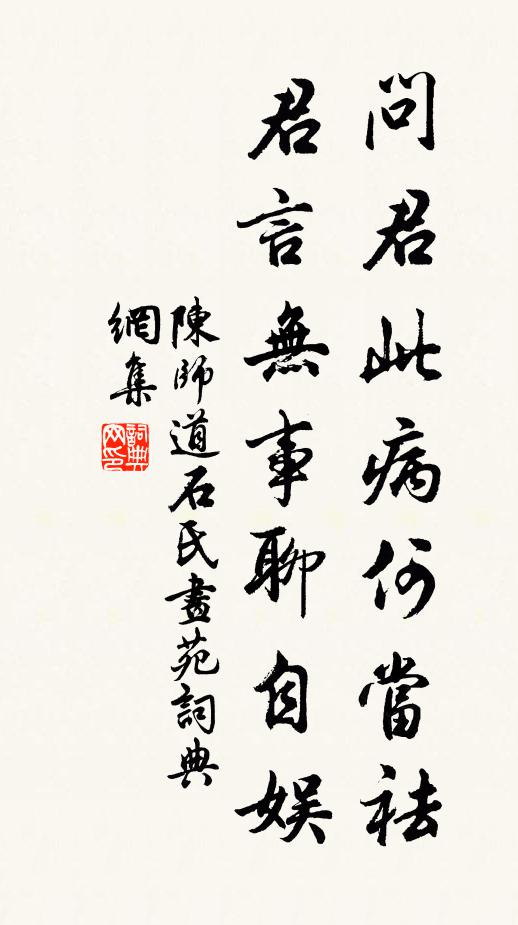 問君此病何當祛
君言無事聊自娱
陳師道石氏畫苑詞典
網集
詞典
网印